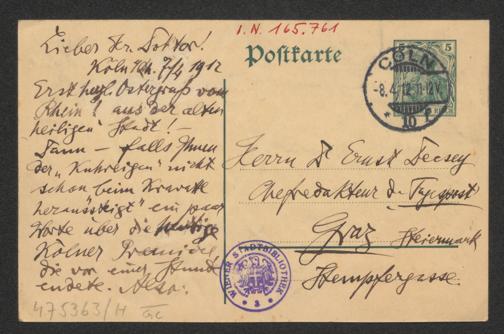 I. N. 165.761
Postkarte
CÖLN
-8.4.12. 11-12V.
* 10 f
5
Lieber Hr. Doktor!
Köln Rh. 7/4 1912
Erst hzgl. Ostergruß vom
Rhein! aus der alten
heiligen Stadt! –
Dann – falls Ihnen
der „Kuhreigen" nicht
schon beim Krawatte
ein paar
Worte über die heutige
Kölner Première
die vor einer Stunde
endete. Also:
Herrn Dr Ernst Decsey
Chefredakteur d. Tagespost
Graz Steiermark
Stempfergasse.
WIENER STADTBIBLIOTHEK
475363/H